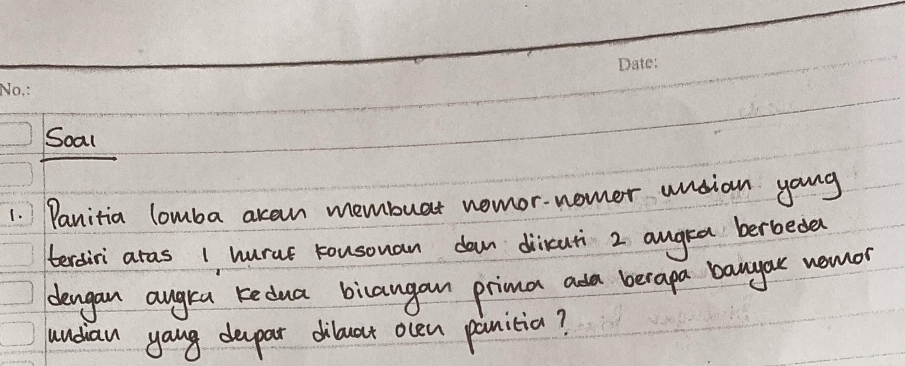 Date:
No.:
Soal
1. Panitia lomba akan membuat nomor-nomor undian yang
terdiri atas 1 huruf konsonan dan diikuti 2 angka berbeda
dengan angka kedua bilangan prima ada berapa banyak nomor
undian yang dapat dibuat oleh panitia?